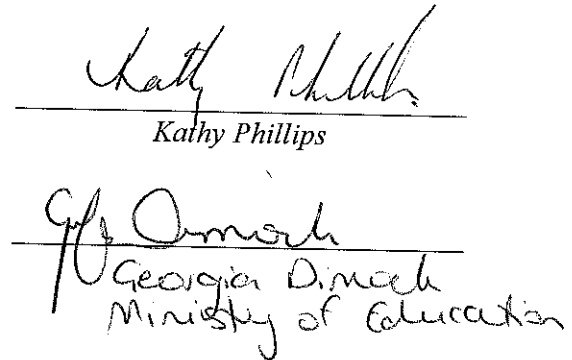 Kathy Phillips
Kathy Phillips
Georgia Dimock
Ministry of Education